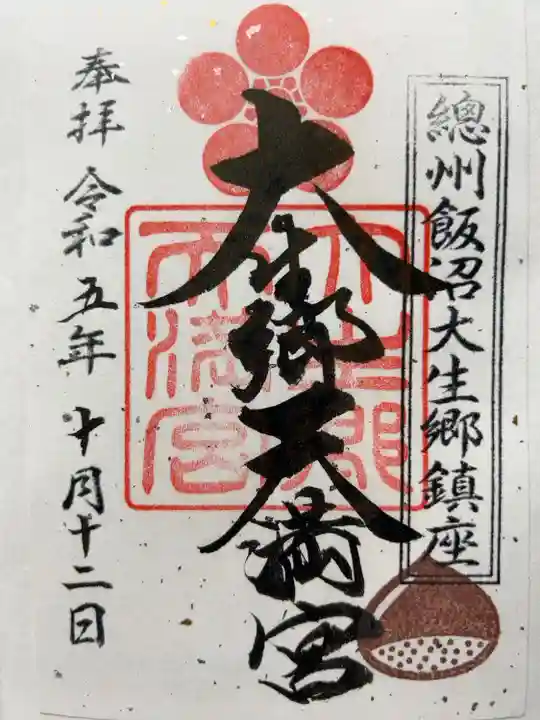 總州飯沼大生郷鎮座
大生郷天満宮
大生郷天満宮
奉拝 令和五年 十月十二日